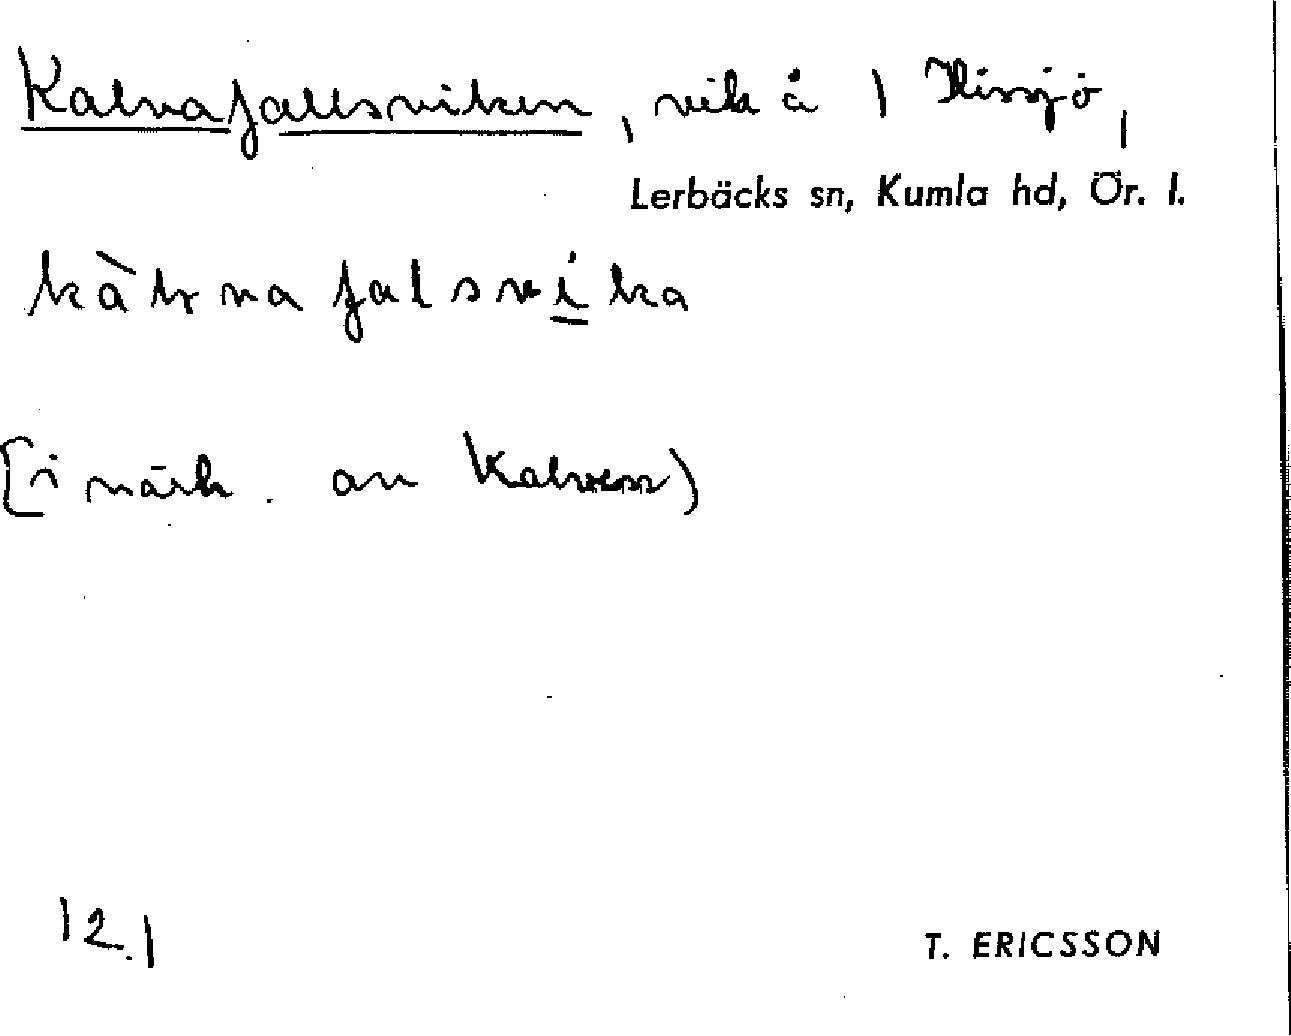 Kalvafallsviken, vik å 1 Hissjö,
Lerbäcks sn, Kumla hd, Ör. l.
kàlva falsvika
[i närh. av Kalven)
12.1
T. ERICSSON